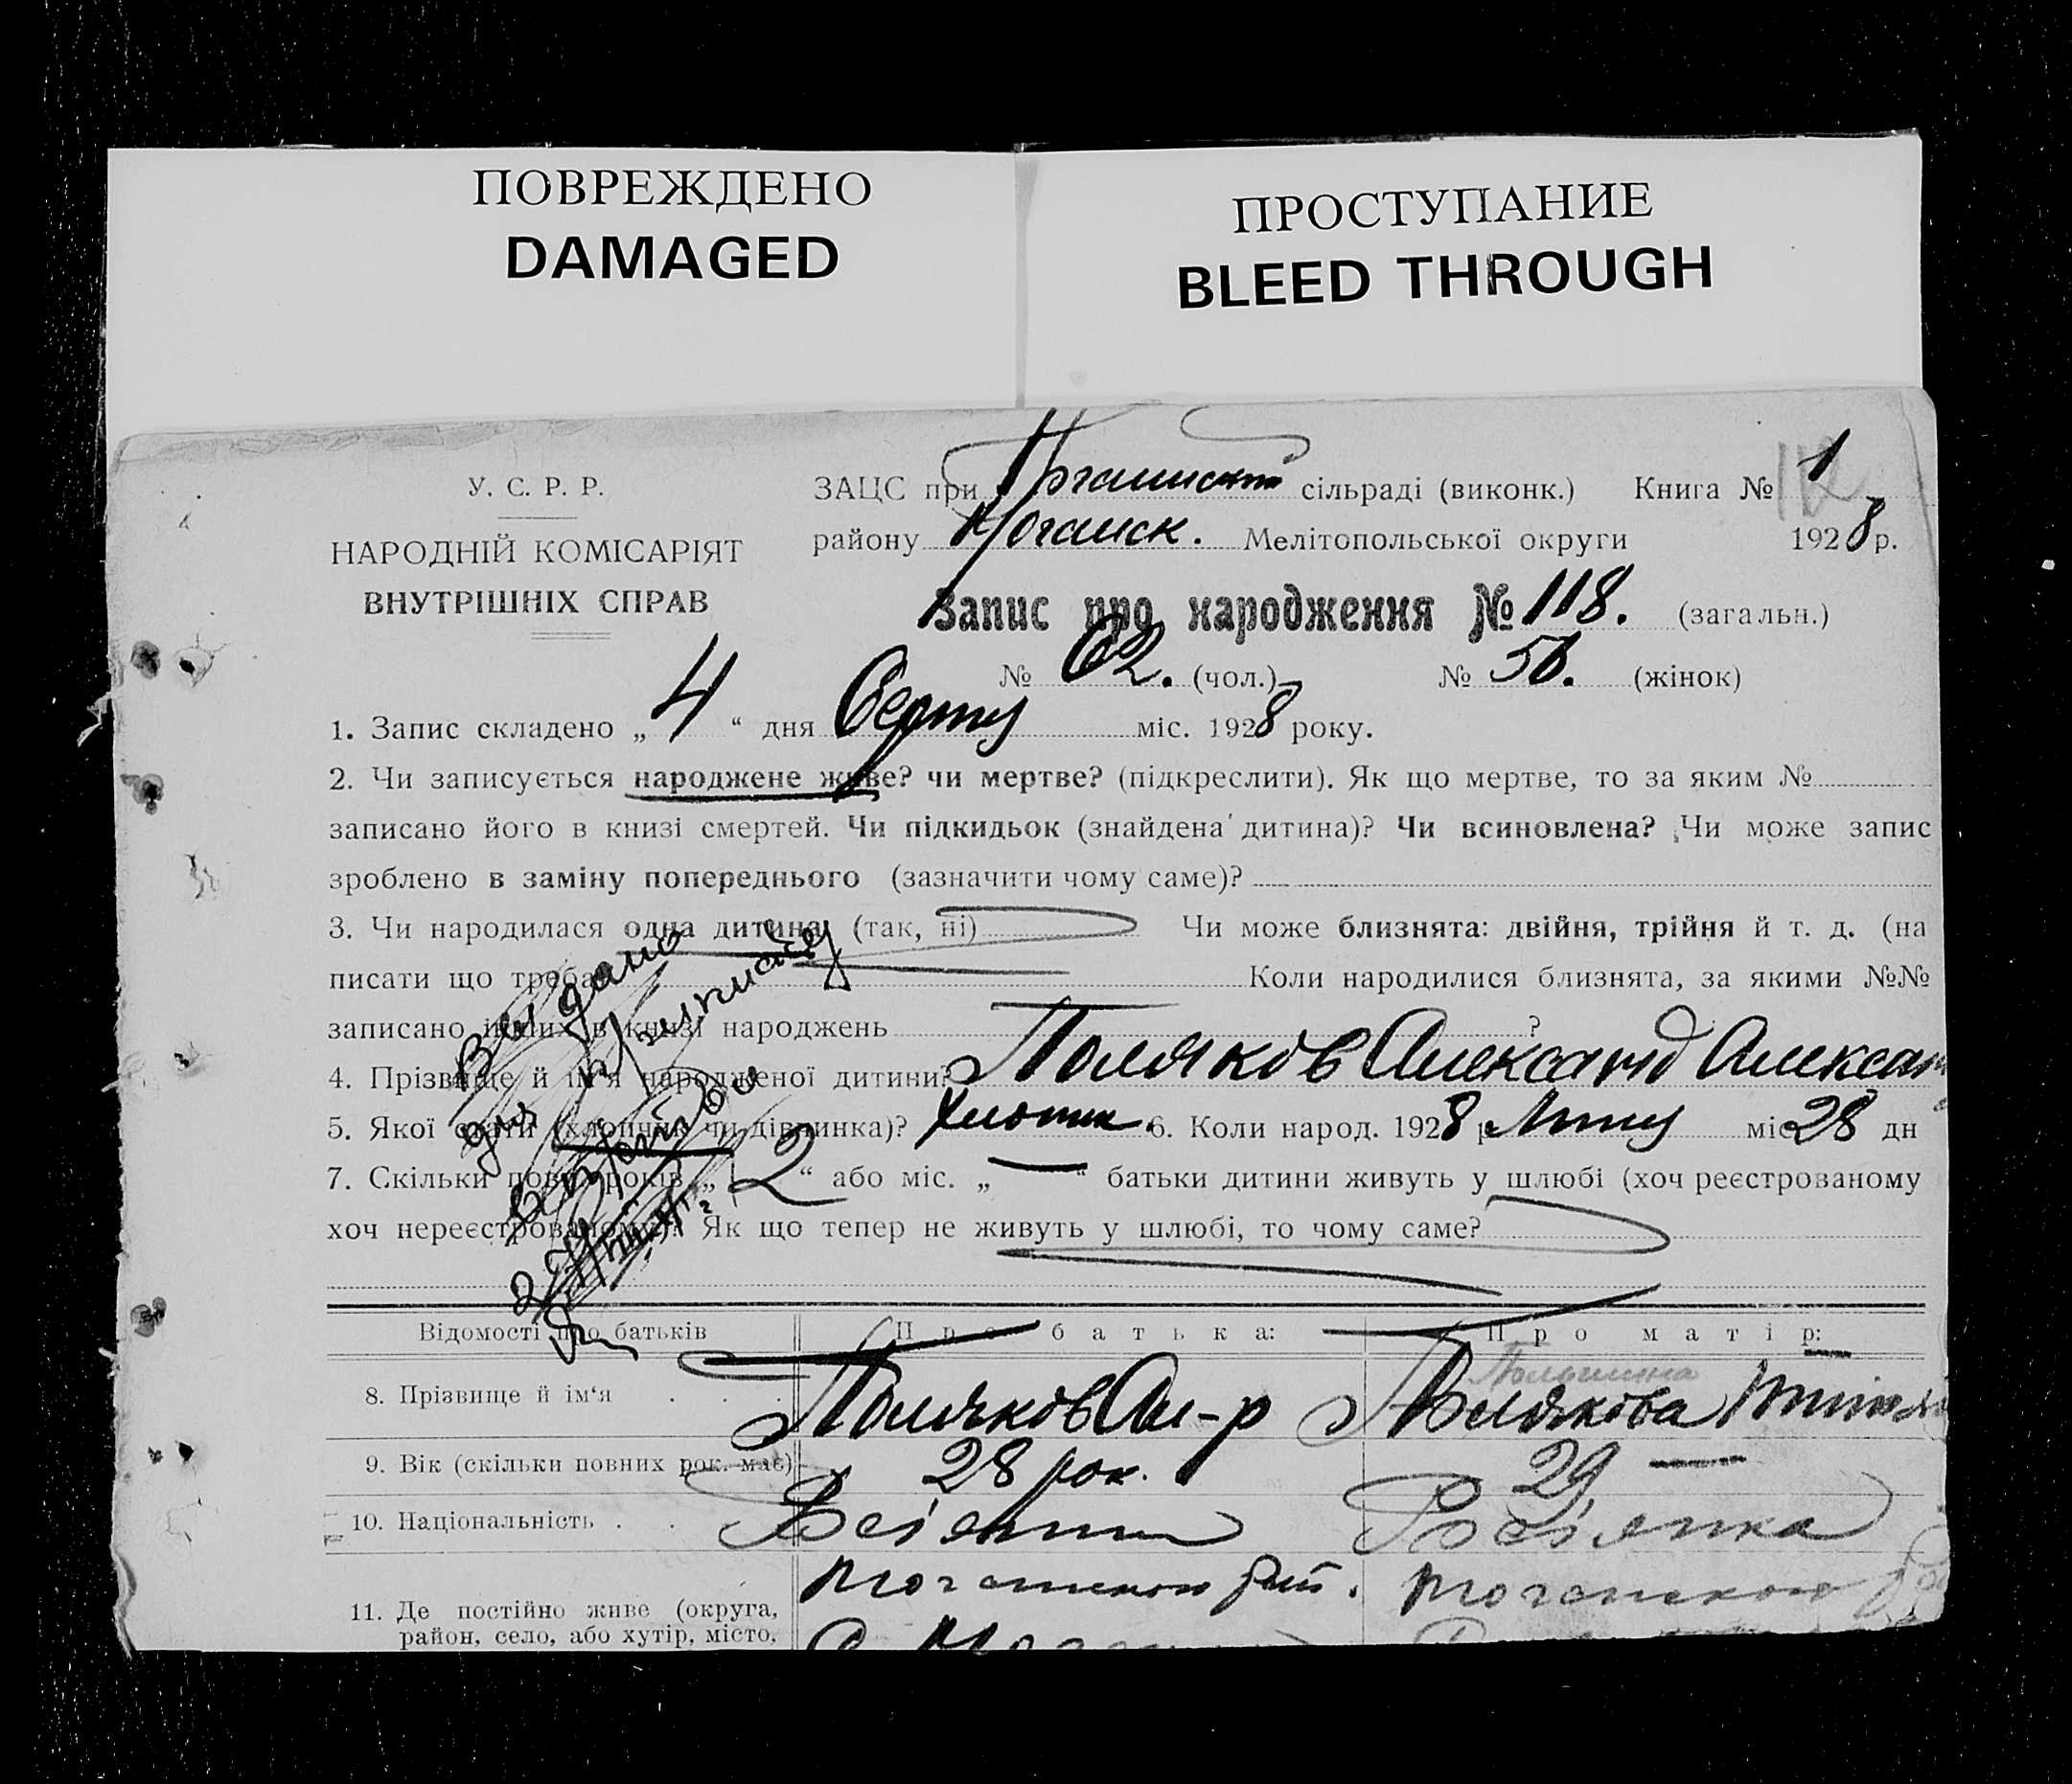 ПОВРЕЖДЕНО
DAMAGED
ПРОСТУПАНИЕ
BLEED THROUGH
У. С. Р. Р.
НАРОДНІЙ КОМІСАРІЯТ
ВНУТРІШНІХ СПРАВ
ЗАЦС при сільраді (виконк.) Книга № 1
району Ногайск. Мелітопольської округи 1928 р.
Запис про народження № 118. (загальн.)
№ 62. (чол.) № 56. (жінок)
1. Запис складено „ 4 “ дня Серпню міс. 1928 року.
2. Чи записується народжене живе? чи мертве? (підкреслити). Як що мертве, то за яким №
записано його в книзі смертей. Чи підкидьок (знайдена дитина)? Чи всиновлена? Чи може запис
зроблено в заміну попереднього (зазначити чому саме)?
3. Чи народилася одна дитина (так, ні) Чи може близнята: двійня, трійня й т. д. (на
писати що треба) Коли народилися близнята, за якими №№
записано інших в книзі народжень ?
4. Прізвище й ім'я народженої дитини? Поляков Александ Алексан
5. Якої стати (хлопчик чи дівчинка)? Хлопчик. 6. Коли народ. 1928 р Липню міс 28 дн
7. Скільки повн. років „ 2 “ або міс. „ — “ батьки дитини живуть у шлюбі (хоч реєстрованому
хоч нереєстрованому)? Як що тепер не живуть у шлюбі, то чому саме?
Видано
для
Відомості про батьків Про батька: Про матір:
8. Прізвище й ім‘я . . . Поляков Ал-р Полякова
9. Вік (скільки повних рок. має) 28 рок. 29 —
10. Національність . . Росіянин Росіянка
11. Де постійно живе (округа, Ногайського рай. Ногайського
район, село, або хутір, місто,